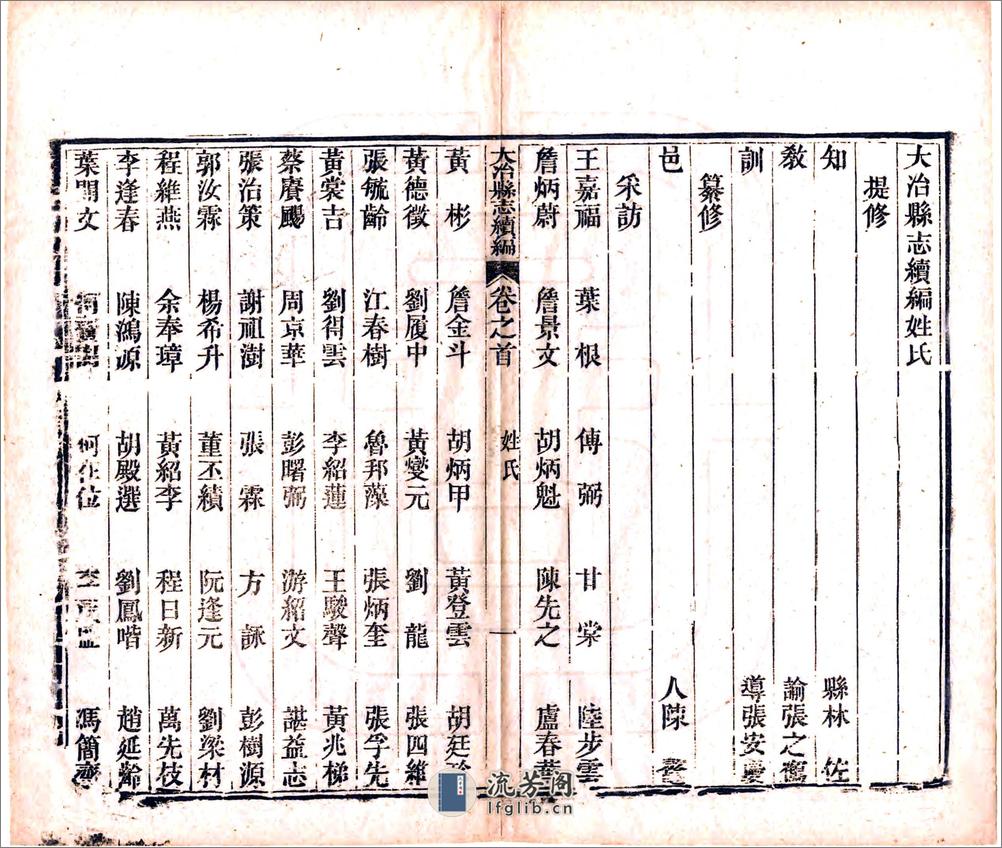 大冶縣志續編姓氏
提修
知縣林佐
教諭張之
訓導張安
纂修
邑人陳
采訪
王嘉福 葉根 傅弼 甘棠 陸步雲
詹炳蔚 詹景文 胡炳魁 陳先之 盧春
大冶縣志續編 卷之首 姓氏 一
黃彬 詹金斗 胡炳甲 黃登雲 胡廷
黃德徵 劉履中 黃燮元 劉龍 張四維
張毓齡 江春樹 魯邦藻 張炳奎 張孚先
黃裳吉 劉得雲 李紹蓮 王駿聲 黃兆梯
蔡賡颺 周京華 彭曙弼 游紹文 諶益志
張治策 謝祖澍 張霖 方詠 彭樹源
郭汝霖 楊希升 董丕績 阮逢元 劉梁材
程維燕 余奉璋 黃紹李 程日新 萬先枝
李逢春 陳鴻源 胡殿選 劉鳳喈 趙延齡
葉開文 何在位 馮簡齋
流芳阁
lfglib.cn